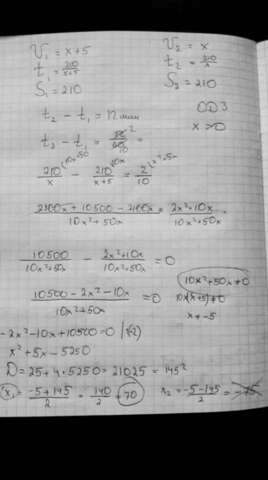 V₁ = x+5 V₂ = x
t₁ = 210/(x+5) t₂ = 210/x
S₁ = 210 S₂ = 210
t₂ - t₁ = n мин ОДЗ
x > 0
t₂ - t₁ =
210/x - 210/(x+5) = 2/10
(2100x + 10500 - 2100x)/(10x²+50x) = (2x²+10x)/(10x²+50x)
10500/(10x²+50x) - (2x²+10x)/(10x²+50x) = 0
(10500 - 2x² - 10x)/(10x²+50x) = 0 10x²+50x ≠ 0
10x(x+5) ≠ 0
x ≠ -5
-2x² - 10x + 10500 = 0 |(-2)
x² + 5x - 5250
D = 25 + 4·5250 = 21025 = 145²
x₁ = (-5+145)/2 = 140/2 = 70 x₂ = (-5-145)/2 = -75